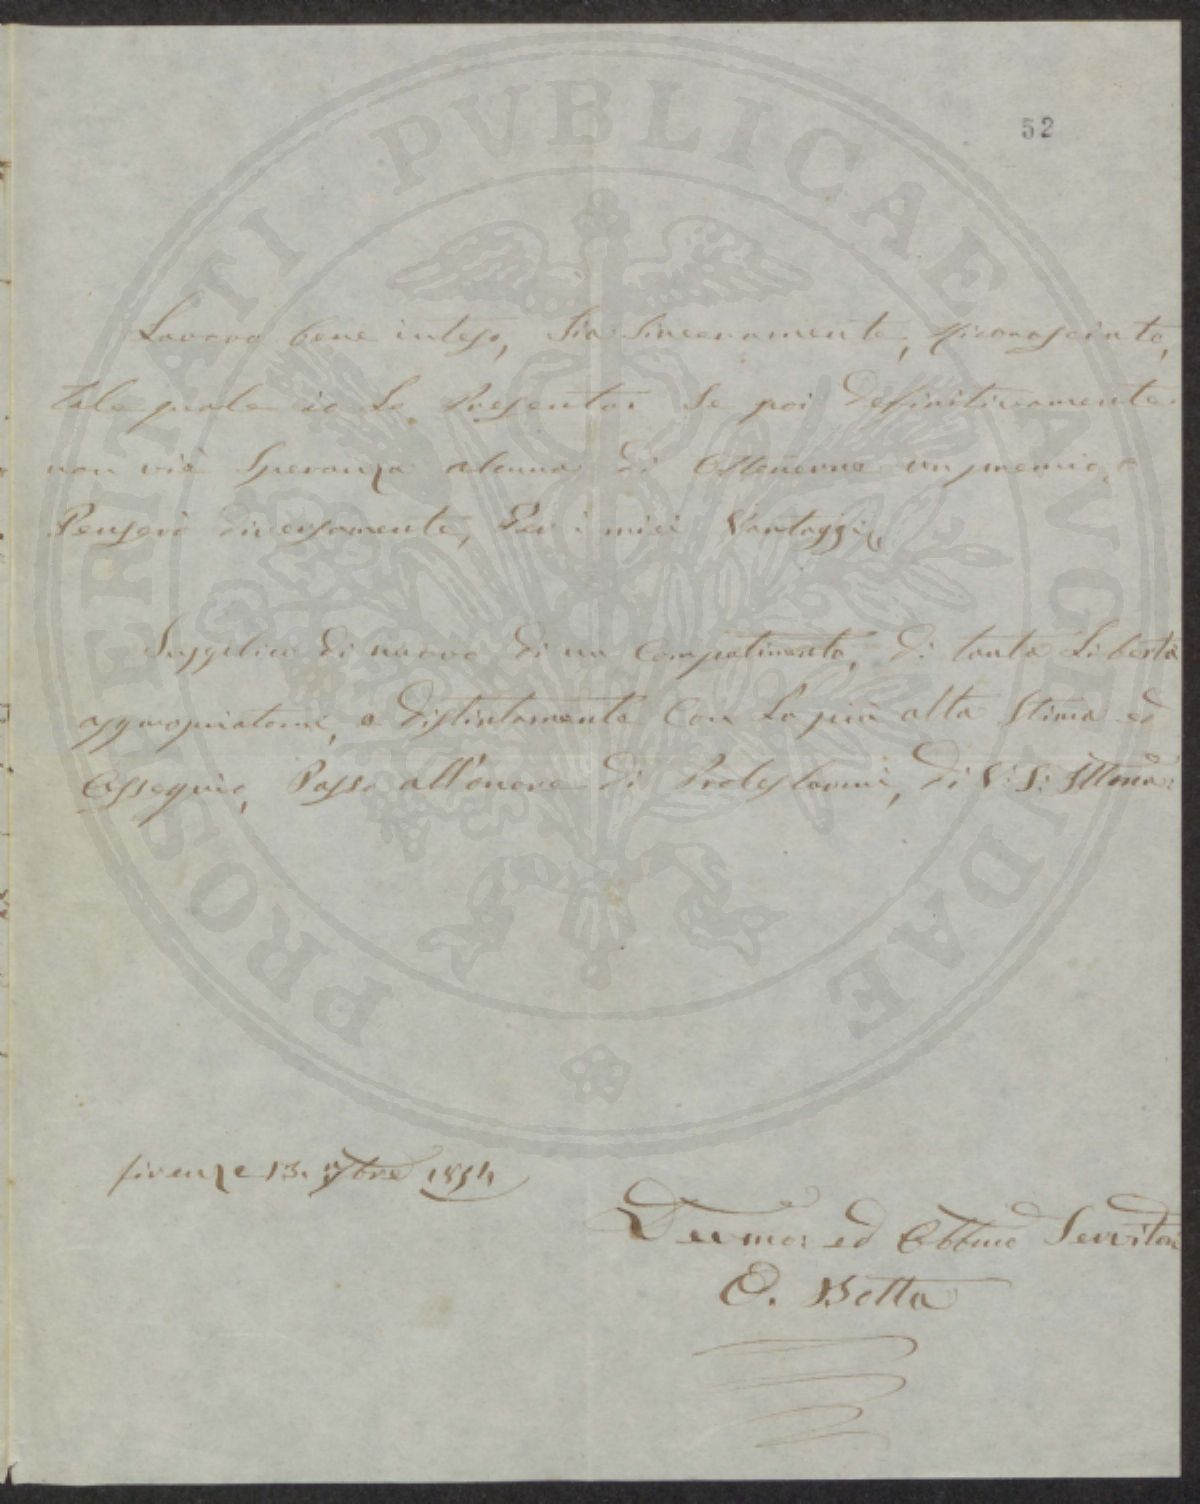 52
PROSPERITATI PVBLICAE AVGENDAE
Lavoro bene inteso, Sia Sinceramente, Riconosciuto,
tale quale io Lo Presento: Se poi Definitivamente
non viè Speranza alcuna di Ottenerne un premio,
Penserò diversamente, Per i miei Vantaggi,
Supplico di nuovo di un Compatimento, di tanta Libertà
appropriatomi, e distintamente Con La più alta Stima ed
Ossequio, Passo all'onore di Protestarmi, di V: S: Illma:
firenze 13. 1854
Devmo: ed Obbmo Servitore
O. Betta